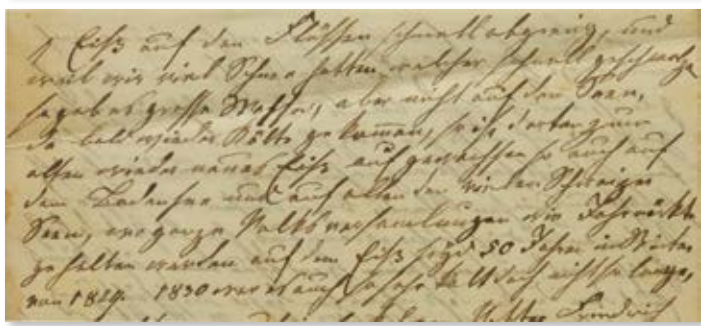 Eiß auf den Flüssen schnell abgieng, und
weil wir viel Schnee hatten, welcher schnell geschmolzen
so gab es grosse Wasser, aber nicht auf den Seen,
da bald wieder Kälte gekommen, so ist dorten zum
alten wieder neues Eiß auf gewachsen so auch auf
dem Bodensee und auf allen den vielen Schweizer
Seen, wo ganze Volksversamlungen wie Jahrmärkte
gehalten werden auf dem Eiß seyd 50 Jahren im Winter
von 1829. 1830 war es auch so sehr kalt doch nicht so lange,
Friedrich